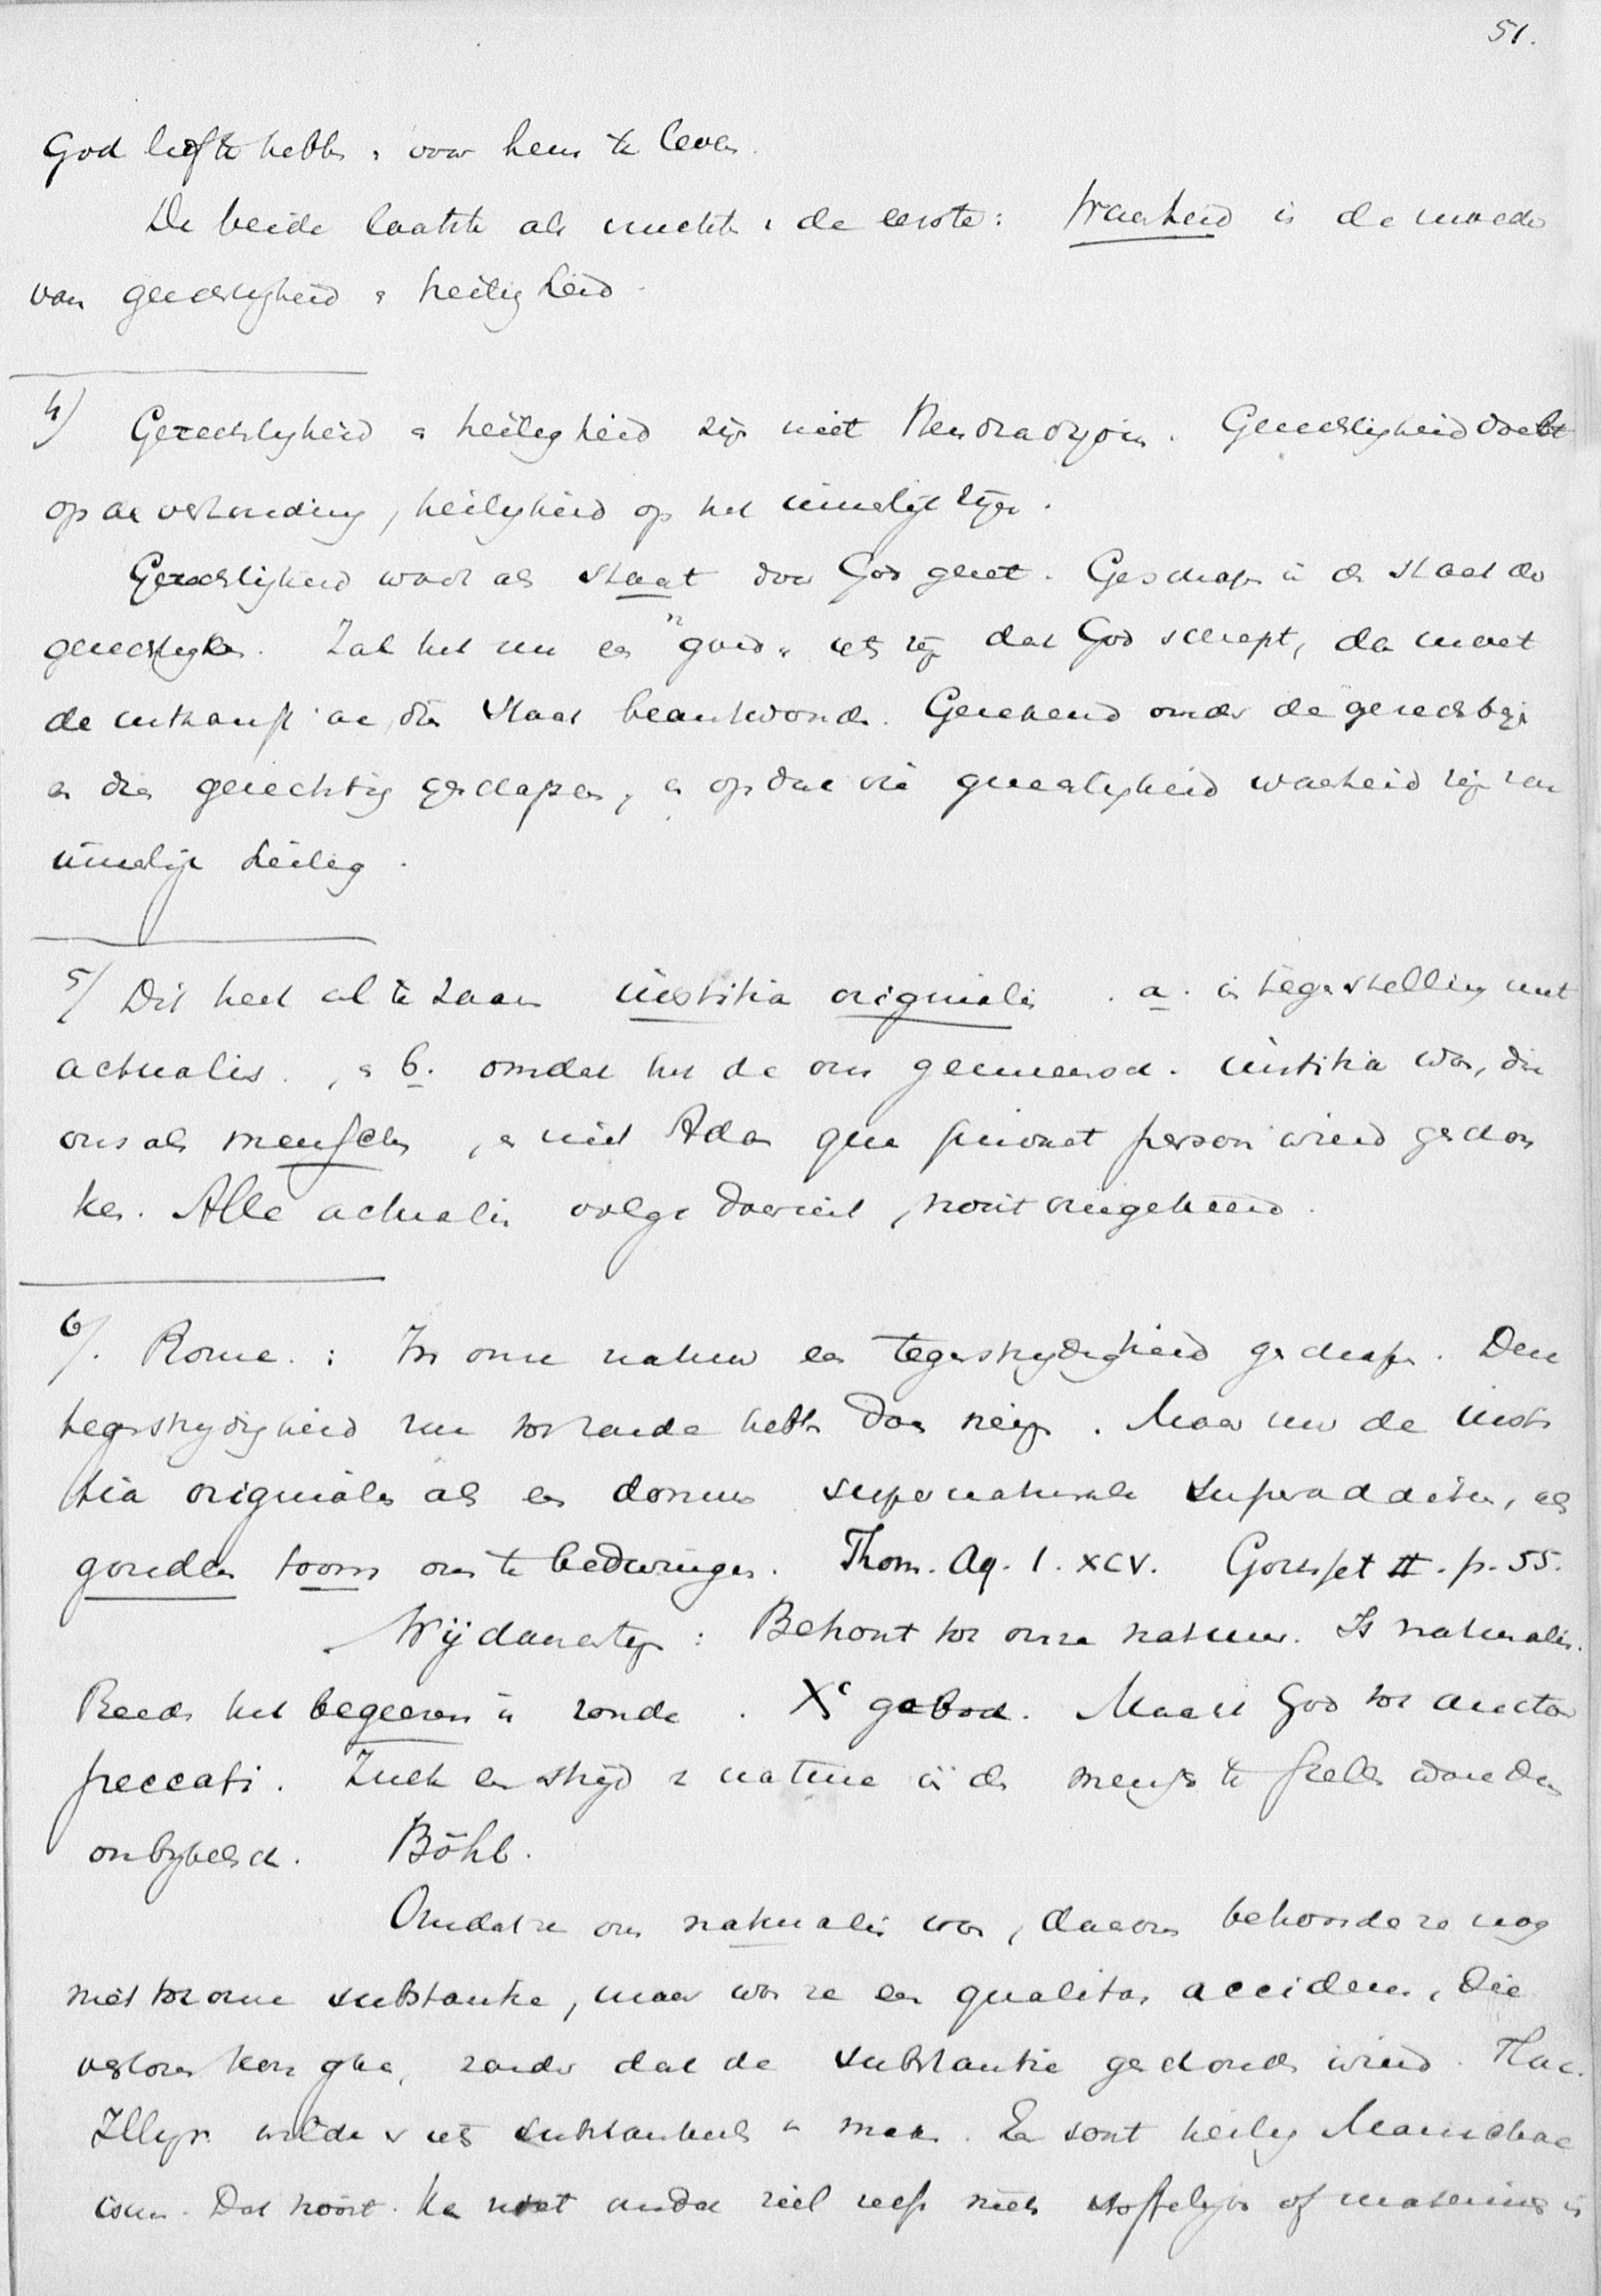 51.
God lief te hebben, voor hem te leven.
De beide laatste als vruchten v. de eerste: Waarheid is de moeder
van gerechtigheid & heiligheid.
4) Gerechtigheid & heiligheid zijn niet Gerechtigheid doelt
op de verhouding, heiligheid op het innerlijk zijn.
Gerechtigheid wordt als staat door God gezet. Geschapen in de staat der
gerechtigheid. Zal het nu een "goed" iets zijn dat God schept, dan moet
de uitkomst aan dien staat beantwoorden. Gerekend onder de gerechtigen
en dien gerechtig geschapen, en opdat die gerechtigheid waarheid zij van
innerlijk heilig.
5/ Dit heet al te zaam iustitia originalis. a. in tegenstelling met
actualis., & b. omdat het de ons iustitia was, die
ons als menschen, & niet Adam qua privaat persoon wierd geschon
ken. Alle actualis volgt daaruit, nooit omgekeerd.
6/. Rome.: In onze natuur een tegenstrijdigheid geschapen. Deze
tegenstrijdigheid zou tot zonde hebben doen neigen. Maar nu de iusti
tia originalis als een donum supernaturale superadditum, als
gouden toom om te bedwingen. Thom. Aq. 1. XCV. Gousset II. p. 55.
Wij daarentegen: Behoort tot onze natuur. Is naturalis.
Reeds het begeeren is zonde. Xe gebod. Maakt God tot auctor
peccati. Zulk een strijd v nature in den mensch te stellen ware dan
onbijbelsch. Böhl.
Omdat ze ons naturalis was, daarom behoorde ze nog
niet tot onze substantie, maar was ze een qualitas accidens, die
verloren kon gaan, zonder dat de substantie geschonden wierd. Flac.
Illyr. wilde er iets substantieels v maken. Een soort heilig Manichae
isme. Dat nooit. Kan niet omdat ziel zelf niets stoffelijks of materieels is